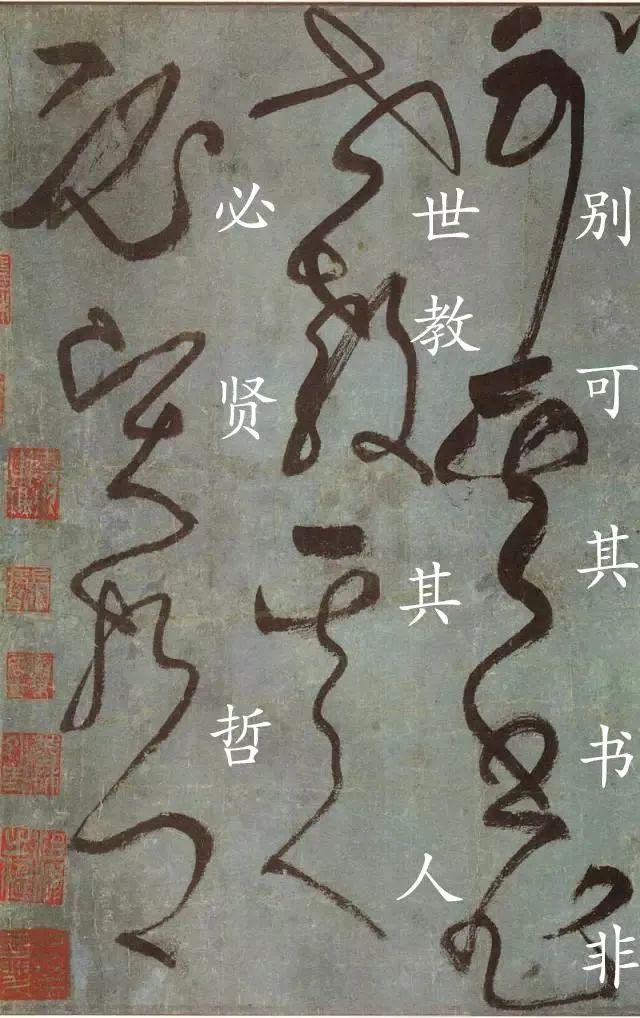 别可其书非
世教其人
必贤哲